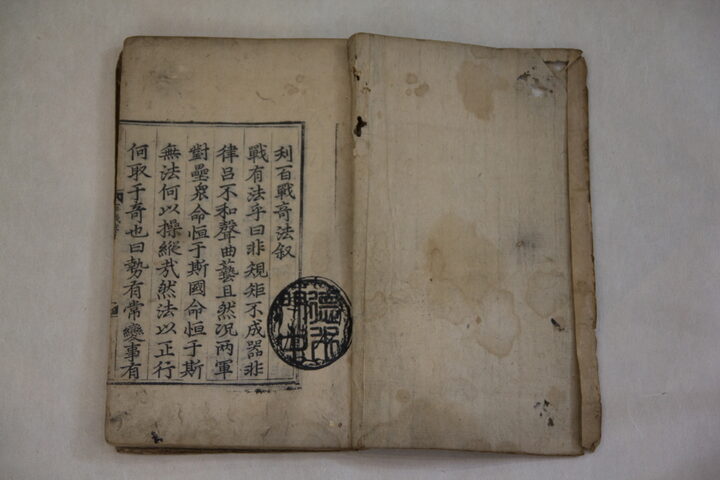 刋百戰竒法叙
戰有法乎曰非規矩不成器非
律吕不和聲曲藝且然况两軍
對壘衆命恒于斯國命恒于斯
無法何以操縱㢤然法以正行
何取于竒也曰勢有常變事有